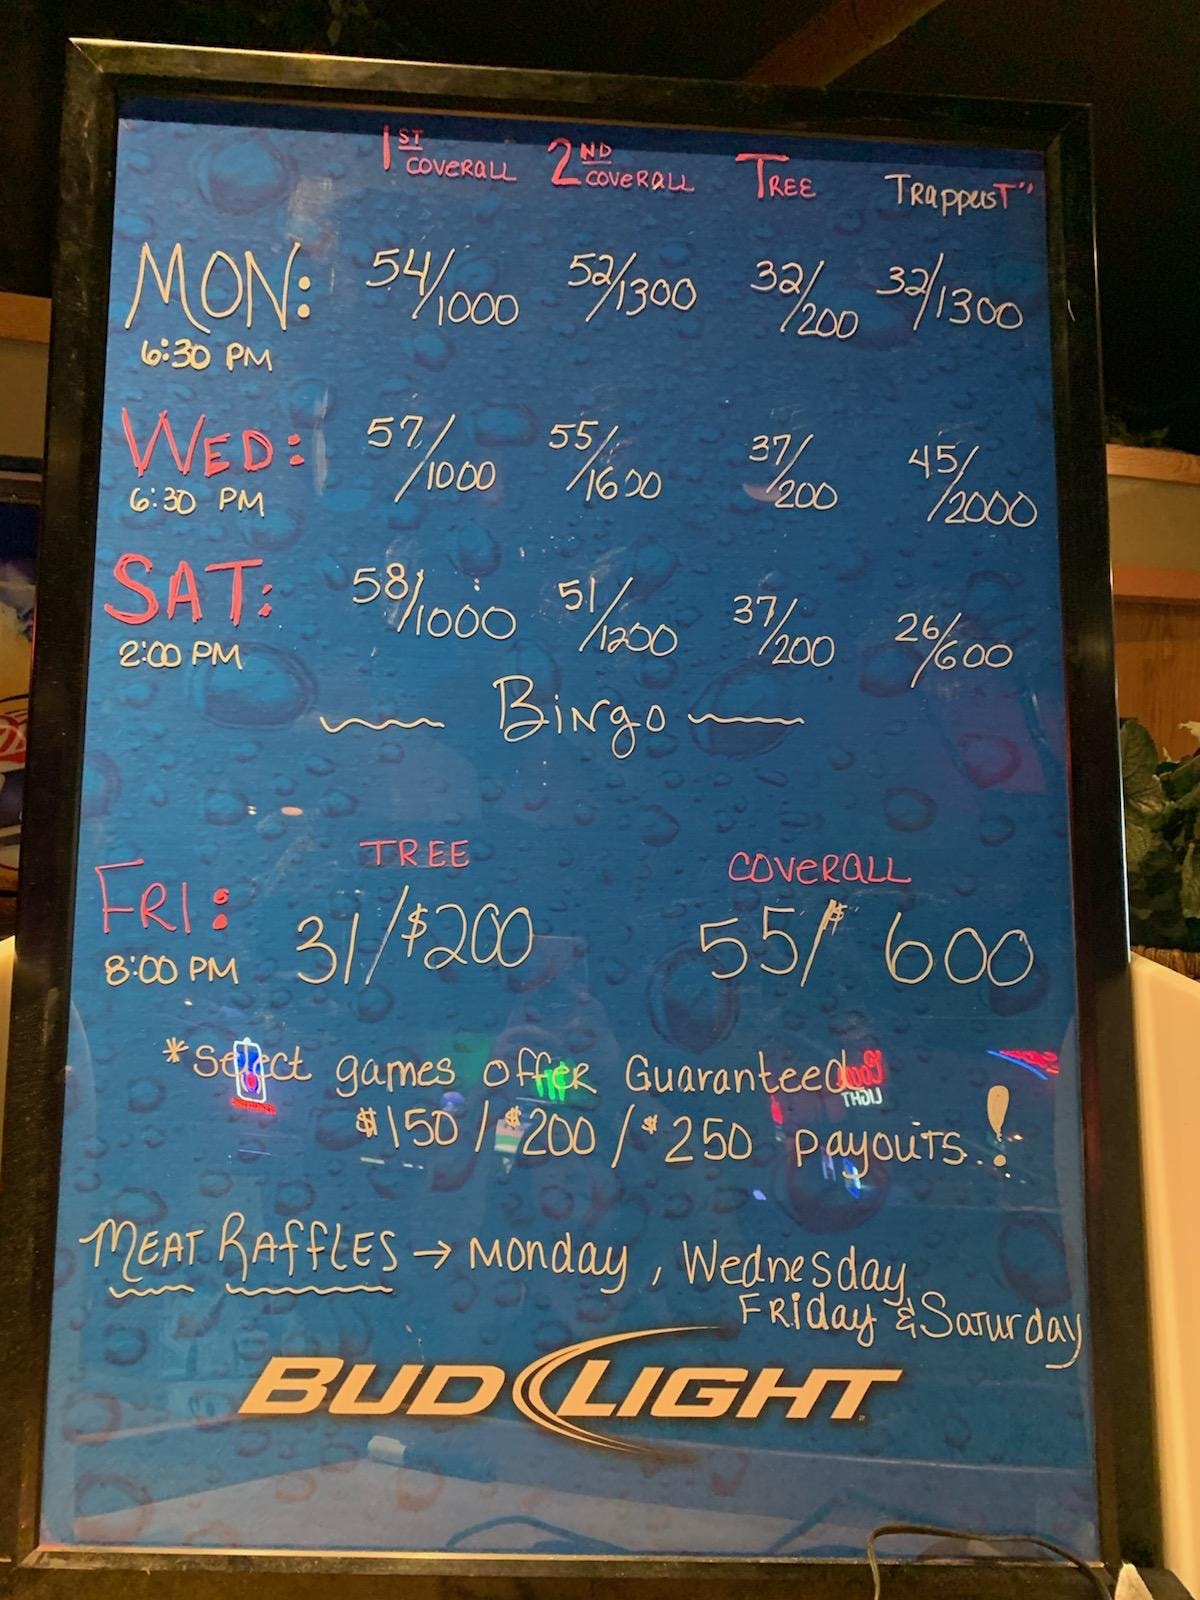 1ST COVERALL 2ND COVERALL TREE TRappersT"
MON: 54/1000 52/1300 32/200 32/1300
6:30 PM
WED: 57/1000 55/1600 37/200 45/2000
6:30 PM
SAT: 58/1000 51/1200 37/200 26/600
2:00 PM
Bingo
TREE COVERALL
FRI: 31/$200 55/$600
8:00 PM
*Select games offer Guaranteed
$150/$200/$250 payouts!
MEAT RAFFLES → Monday, Wednesday,
Friday & Saturday
BUD LIGHT